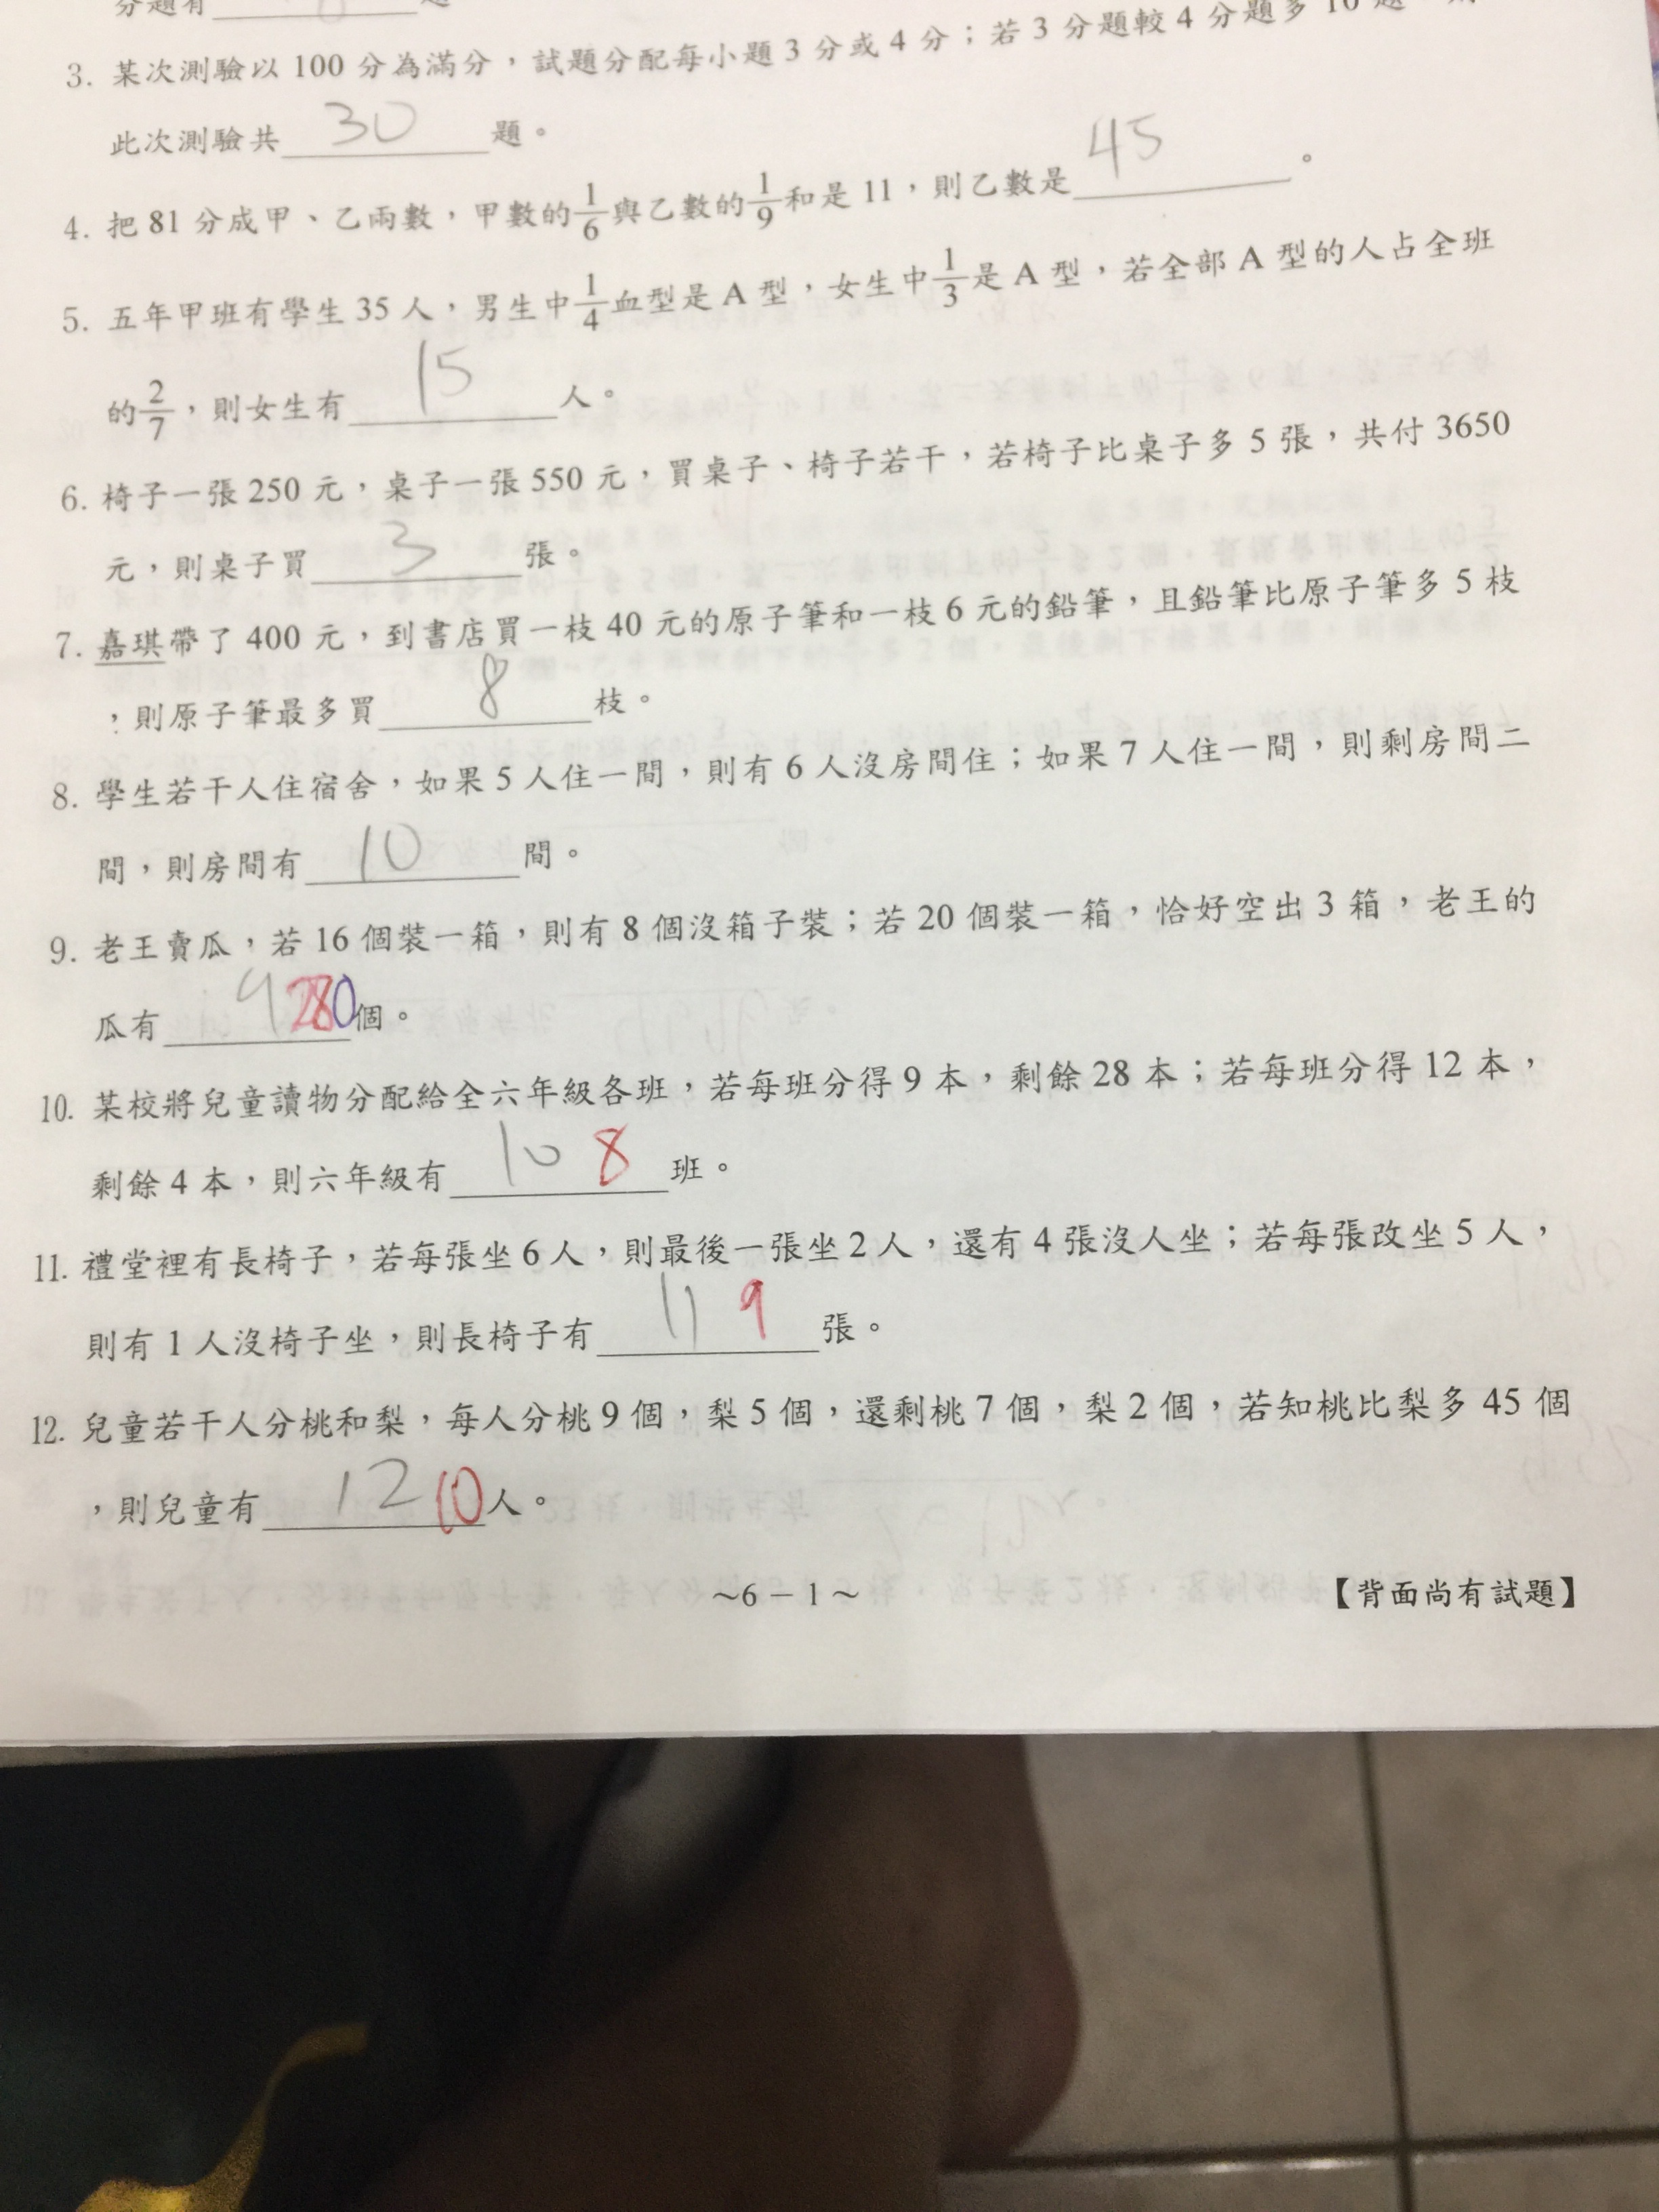 分題有 題
3. 某次測驗以 100 分為滿分，試題分配每小題 3 分或 4 分；若 3 分題較 4 分題多 10 題，則
此次測驗共 30 題。
4. 把 81 分成甲、乙兩數，甲數的1/6與乙數的1/9和是 11，則乙數是 45 。
5. 五年甲班有學生 35 人，男生中1/4血型是 A 型，女生中1/3是 A 型，若全部 A 型的人占全班
的2/7，則女生有 15 人。
6. 椅子一張 250 元，桌子一張 550 元，買桌子、椅子若干，若椅子比桌子多 5 張，共付 3650
元，則桌子買 3 張。
7. 嘉琪帶了 400 元，到書店買一枝 40 元的原子筆和一枝 6 元的鉛筆，且鉛筆比原子筆多 5 枝
，則原子筆最多買 8 枝。
8. 學生若干人住宿舍，如果 5 人住一間，則有 6 人沒房間住；如果 7 人住一間，則剩房間二
間，則房間有 10 間。
9. 老王賣瓜，若 16 個裝一箱，則有 8 個沒箱子裝；若 20 個裝一箱，恰好空出 3 箱，老王的
瓜有 9 280 個。
10. 某校將兒童讀物分配給全六年級各班，若每班分得 9 本，剩餘 28 本；若每班分得 12 本，
剩餘 4 本，則六年級有 10 8 班。
11. 禮堂裡有長椅子，若每張坐 6 人，則最後一張坐 2 人，還有 4 張沒人坐；若每張改坐 5 人，
則有 1 人沒椅子坐，則長椅子有 11 9 張。
12. 兒童若干人分桃和梨，每人分桃 9 個，梨 5 個，還剩桃 7 個，梨 2 個，若知桃比梨多 45 個
，則兒童有 12 10 人。
～6－1～ 【背面尚有試題】